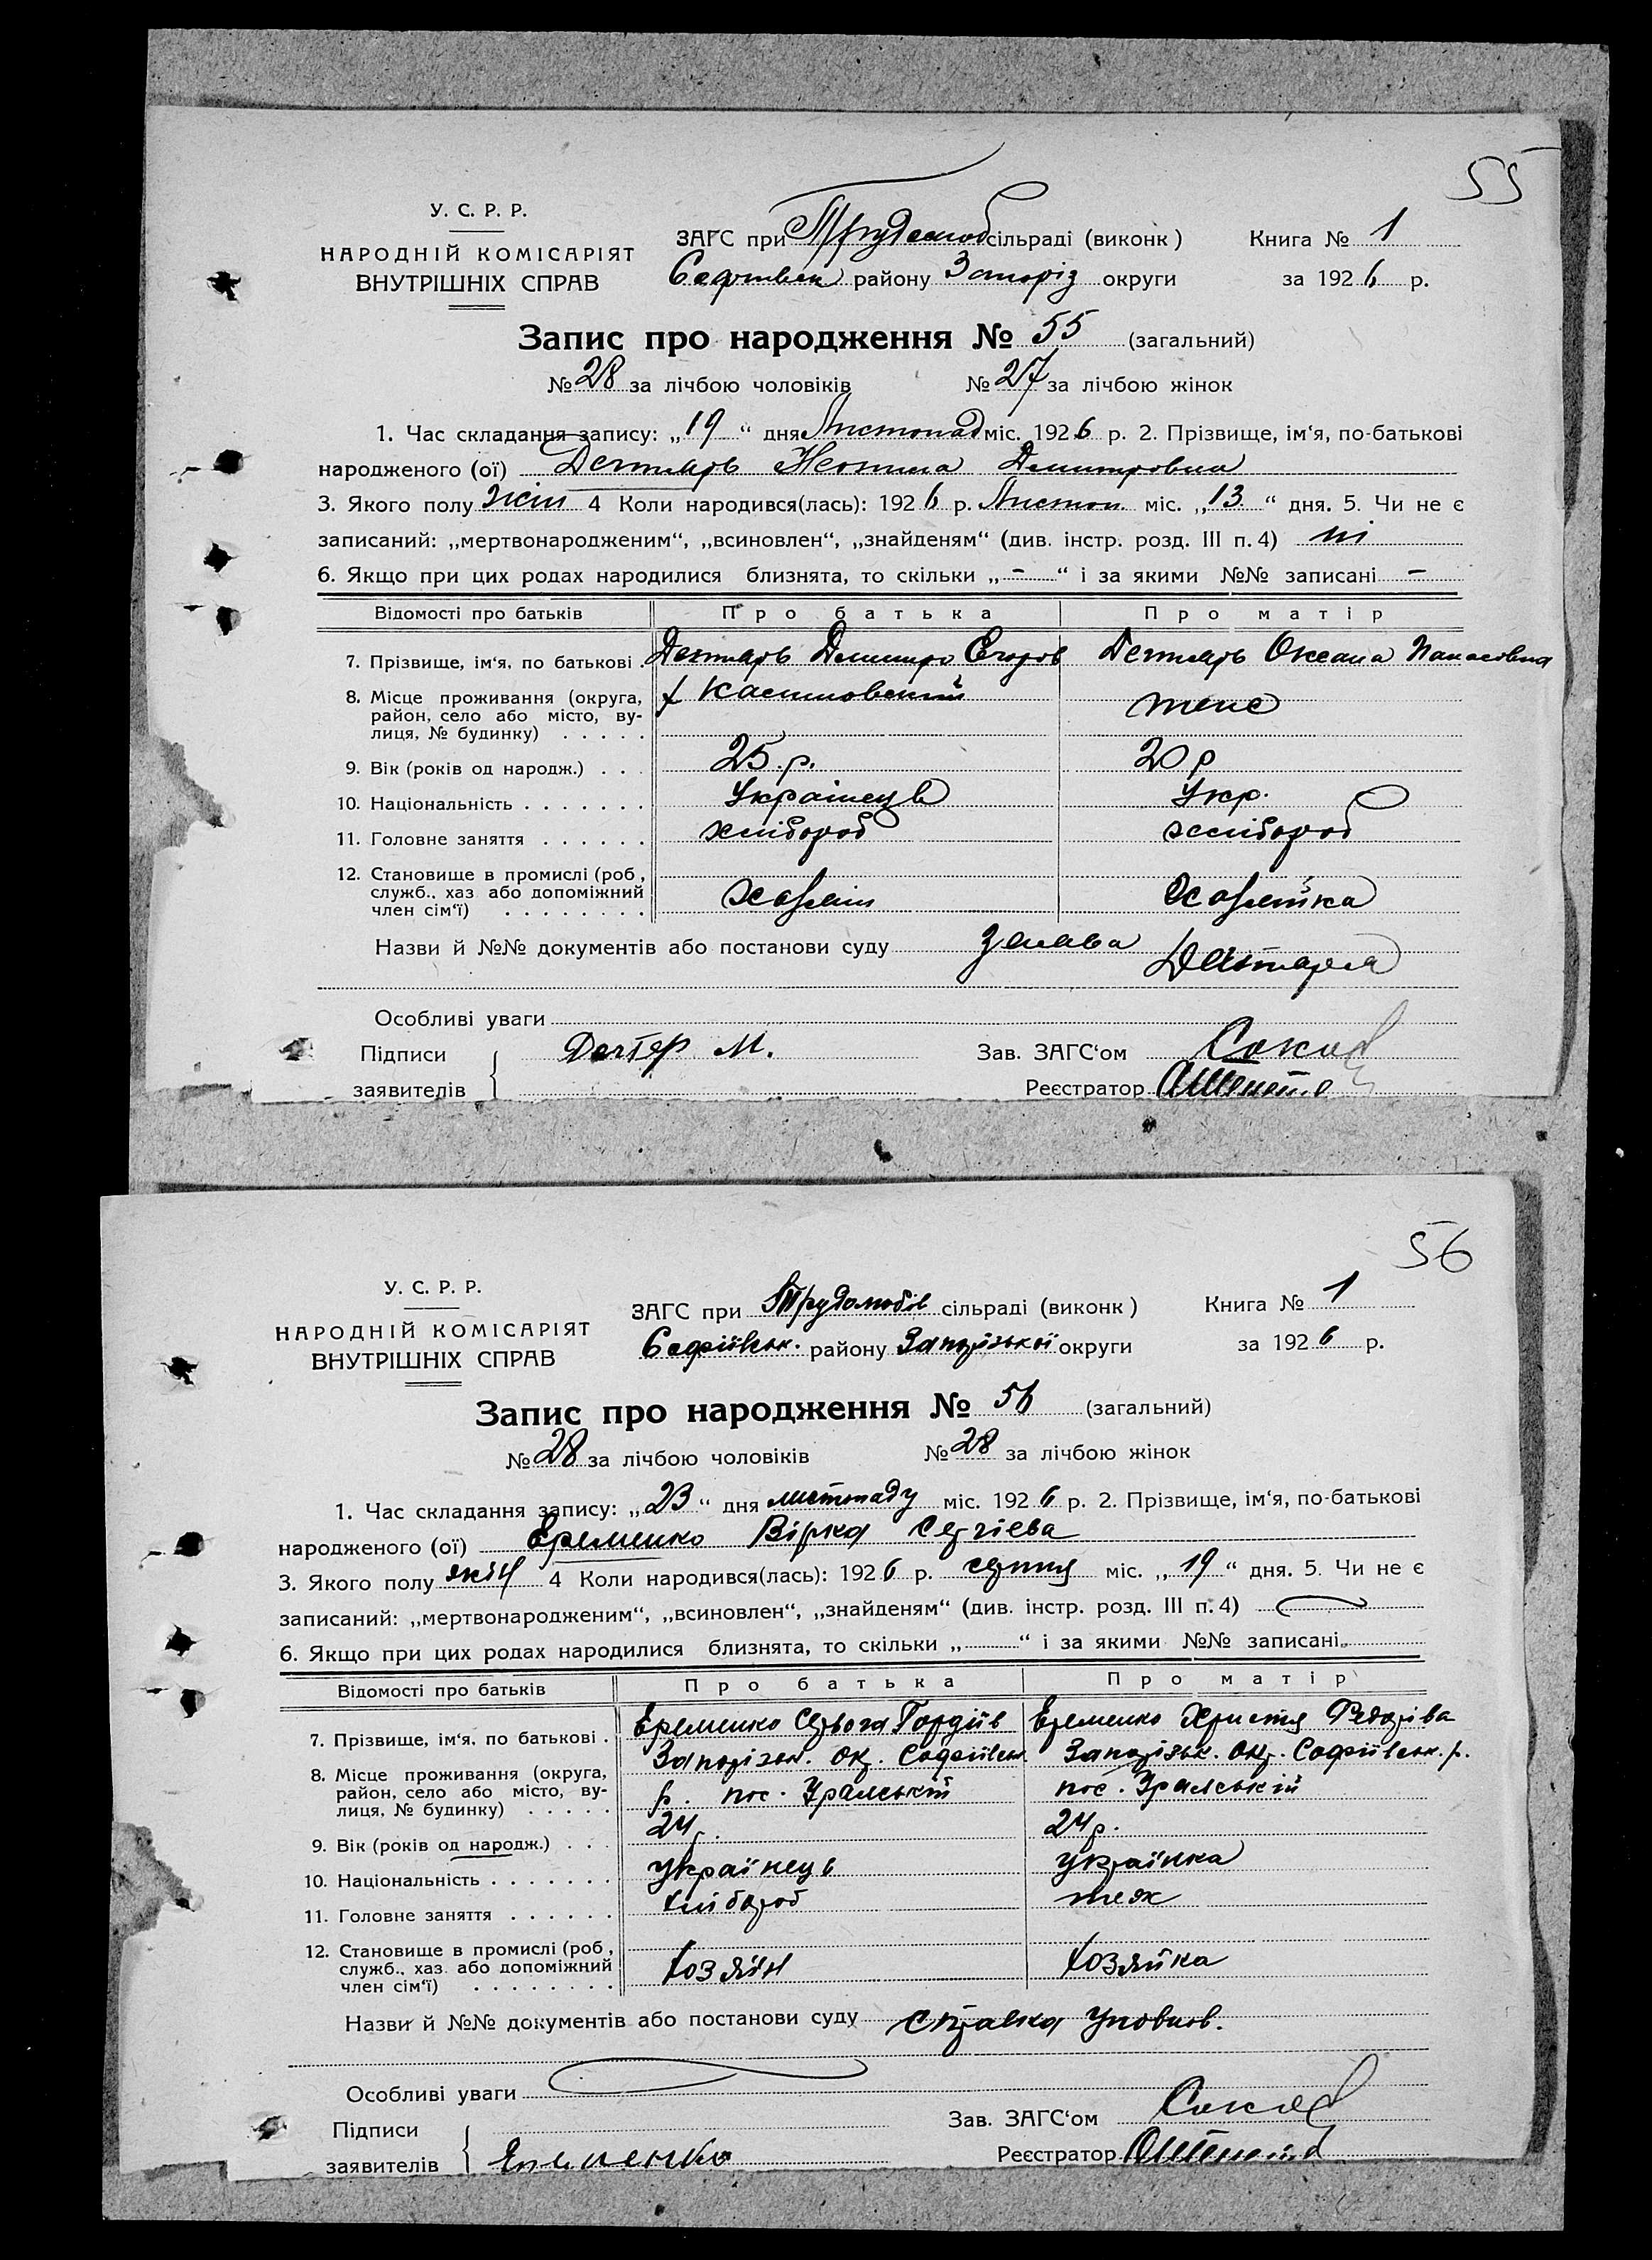 55
У. С. Р. Р.
НАРОДНІЙ КОМІСАРІЯТ
ВНУТРІШНІХ СПРАВ
ЗАГС при Трудолюб сільраді (виконк)
Софіївськ району Запоріз округи
Книга № 1
за 1926 р.
Запис про народження № 55 (загальний)
№ 28 за лічбою чоловіків № 27 за лічбою жінок
1. Час складання запису: „19“ дня Листопад міс. 1926 р. 2. Прізвище, ім‘я, по-батькові
народженого (ої) Дегтярь Неонила Дмитровна
3. Якого полу жін 4 Коли народився(лась): 1926 р. Листоп. міс. „13“ дня. 5. Чи не є
записаний: „мертвонародженим“, „всиновлен“, „знайденям“ (див. інстр. розд. III п. 4) ні
6. Якщо при цих родах народилися близнята, то скільки „-“ і за якими №№ записані -
Відомості про батьків Про батька Про матір
7. Прізвище, ім‘я, по батькові . Дегтярь Дмитро Егоров Дегтярь Оксана Панасовна
8. Місце проживання (округа, район, село або місто, вулиця, № будинку) . . . . . х теж
9. Вік (років од народж.) . . . 25 р. 20 р
10. Національність . . . . . . . Українець Укр.
11. Головне заняття . . . . . . хлібороб хлібороб
12. Становище в промислі (роб, служб., хаз. або допоміжний член сім‘ї) . . . . . . . . Хозяін Хозяйка
Назви й №№ документів або постанови суду Заява
Дегтаря
Особливі уваги
Підписи заявителів Дегтер М.
Зав. ЗАГС‘ом
Реєстратор
56
У. С. Р. Р.
НАРОДНІЙ КОМІСАРІЯТ
ВНУТРІШНІХ СПРАВ
ЗАГС при Трудолюбів сільраді (виконк)
Софіївськ. району Запорізької округи
Книга № 1
за 1926 р.
Запис про народження № 56 (загальний)
№ 28 за лічбою чоловіків № 28 за лічбою жінок
1. Час складання запису: „23“ дня листопаду міс. 1926 р. 2. Прізвище, ім‘я, по-батькові
народженого (ої) Еременко Вірка Сергієва
3. Якого полу жін 4 Коли народився(лась): 1926 р. серпня міс. „19“ дня. 5. Чи не є
записаний: „мертвонародженим“, „всиновлен“, „знайденям“ (див. інстр. розд. III п. 4)
6. Якщо при цих родах народилися близнята, то скільки „ “ і за якими №№ записані
Відомості про батьків Про батька Про матір
7. Прізвище, ім‘я, по батькові . Еременко Сервога Гордіїв Еременко Христя Федорівa
8. Місце проживання (округа, район, село або місто, вулиця, № будинку) . . . . . Запорізьк. ок. Софіївськ. р. пос. Уральській Запорізьк. окр. Софіївськ. р. пос. Уральській
9. Вік (років од народж.) . . . 24 р. 24 р.
10. Національність . . . . . . . українець українка
11. Головне заняття . . . . . . хлібороб теж
12. Становище в промислі (роб, служб., хаз. або допоміжний член сім‘ї) . . . . . . . . Хозяїн Хозяйка
Назви й №№ документів або постанови суду справка уповнов.
Особливі уваги
Підписи заявителів Еременко
Зав. ЗАГС‘ом
Реєстратор